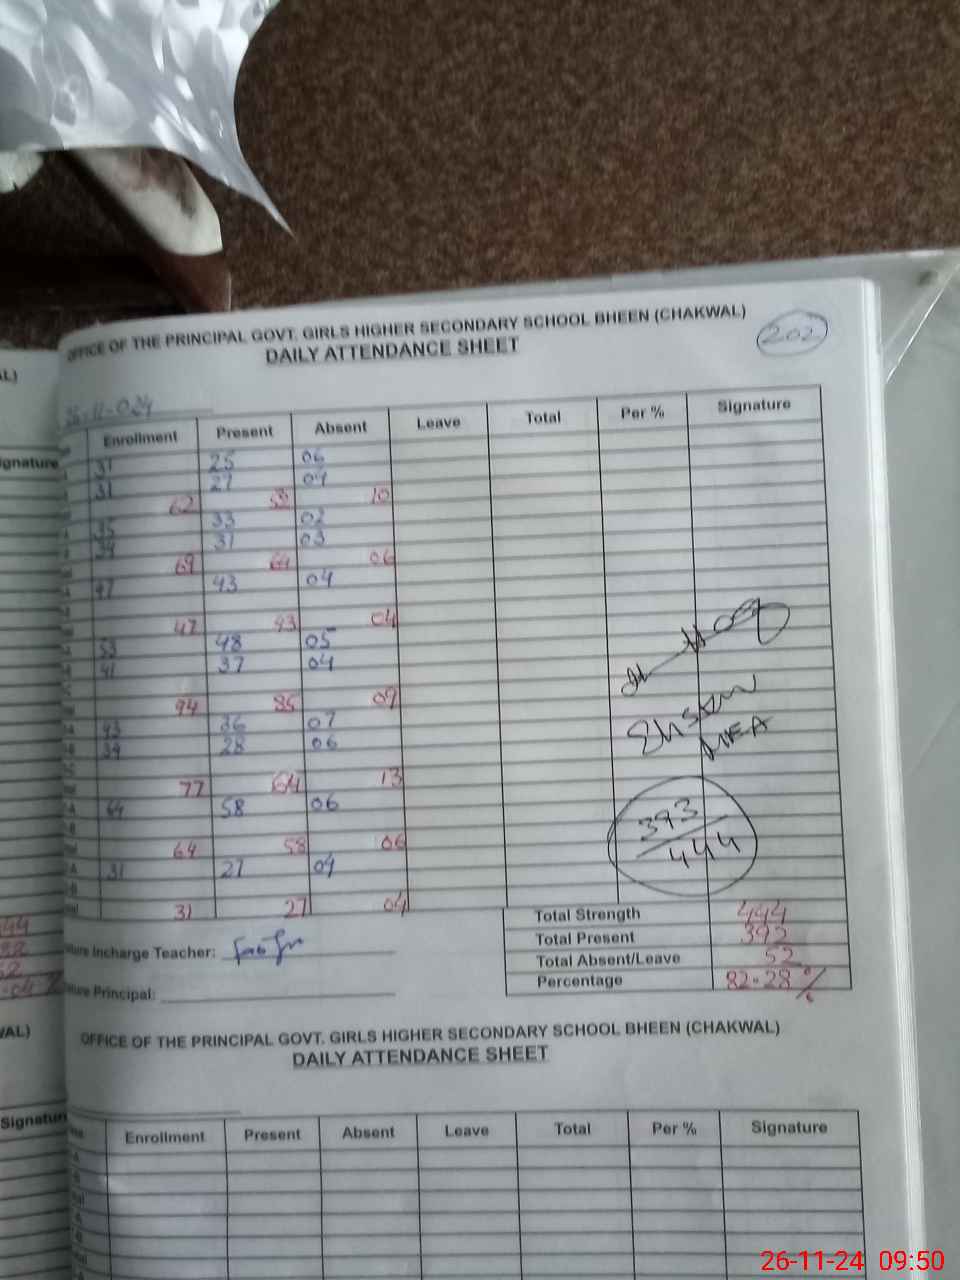 OFFICE OF THE PRINCIPAL GOVT. GIRLS HIGHER SECONDARY SCHOOL BHEEN (CHAKWAL)
DAILY ATTENDANCE SHEET
202
26-11-024
Enrollment Present Absent Leave Total Per % Signature
31 25 06
31 27 04
62 52 10
35 33 02
34 31 03
69 64 06
47 43 04
47 43 04
53 48 05
41 37 04
94 85 09
43 36 07
34 28 06
77 64 13
64 58 06
64 58 06
31 27 04
31 27 04
MEA
393
444
Total Strength 444
Total Present 392
Total Absent/Leave 52
Percentage 82.28%
Incharge Teacher:
Principal:
OFFICE OF THE PRINCIPAL GOVT. GIRLS HIGHER SECONDARY SCHOOL BHEEN (CHAKWAL)
DAILY ATTENDANCE SHEET
Enrollment Present Absent Leave Total Per % Signature
Signature
26-11-24 09:50